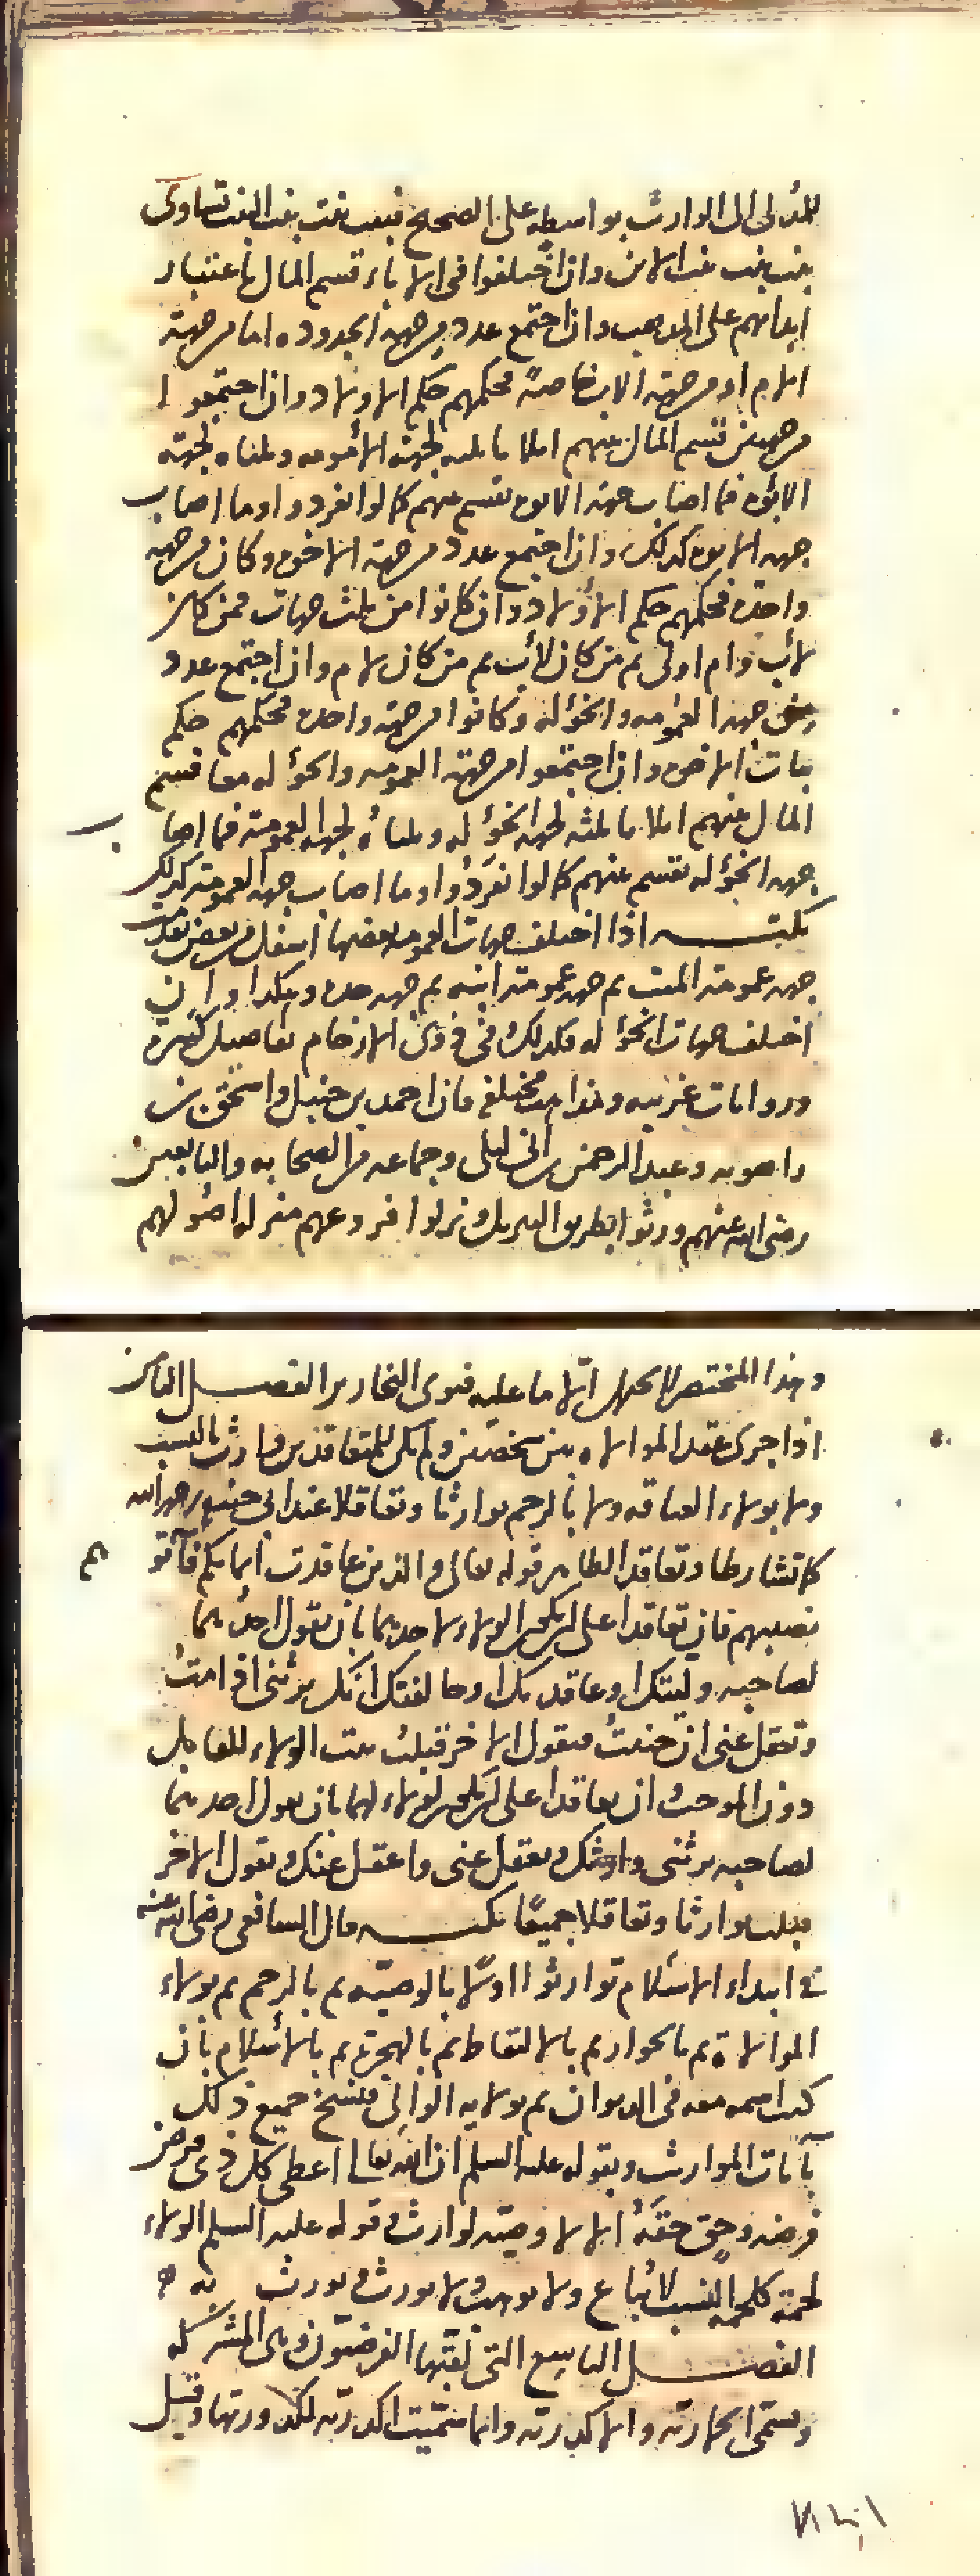 للمدلى الى الوارث بواسطة على الصحيح فبنت بنت بنت البنت تساوى
بنت بنت بنت الابن وان اختلفوا فى الاباء قسم المال باعتبار
ابدانهم على المذهب وان اجتمع عدد من جهة الجدوده اما من جهة
الام او من جهة الاب خاصة فحكمهم حكم الاولاد وان اجتمعوا
من جهتين قسم المال بينهم اثلاثا ثلثه لجهة الامومه وثلثاه لجهة
الابوه فما اصاب جهة الابوه تقسم بينهم كما لو انفردوا وما اصاب
جهة الامومه كذلك وان اجتمع عدد من جهة الاخوه وكان من جهة
واحده فحكمهم حكم الاولاد وان كانوا من ثلث جهات فمن كان
لاب وام اولى ثم من كان لاب ثم من كان لام وان اجتمع عدد
من جهة العمومه والخؤله وكانوا من جهة واحده فحكمهم حكم
بنات الاخوه وان اجتمعوا من جهة العمومه والخؤله معا قسم
المال بينهم اثلاثا ثلثه لجهة الخؤله وثلثاه لجهة العمومة فما اصاب
جهة الخؤله تقسم بينهم كما لو انفردوا وما اصاب جهة العمومة كذلك
نكتــــه اذا اختلف جهات العمومه بعضها اسفل من بعض تقدمت
جهة عمومة الميت ثم جهة عمومة ابيه ثم جهة جده وهكذا وان
اختلف جهات الخؤله فكذلك فى ذوى الارحام تفاصيل كثيرة
وروايات غريبه ومذاهب مختلفه فان احمد بن حنبل واسحق بن
راهويه وعبد الرحمن بن ابى ليلى وجماعه من الصحابه والتابعين
رضى الله عنهم ورثوا بطريق التنزيل ونزلوا فروعهم منزلة اصولهم
وهذا المختصر لا يحتمل الا ما عليه فتوى النحارير الفصـــل الثامن
اذا جرى عقد الموالاه بين شخصين ولم يكن للمتعاقدين وارث بالنسب
ولا بولاء العتاقه ولا بالرحم توارثا وتعاقلا عند ابى حنيفه رحمه الله
كما تشارطا وتعاقدا لظاهر قوله تعالى والذين عاقدت ايمانكم فآتوهم
نصيبهم فان تعاقدا على ان يكون الولاء لاحدهما بان يقول احدهما
لصاحبه وليتك او عاقدتك او حالفتك انك ترثنى اذا مت
وتعقل عنى ان جنيت فيقول الاخر قبلت يثبت الولاء للقابل
دون الموجب وان تعاقدا على ان يكون الولاء لهما بان يقول احدهما
لصاحبه ترثنى وارثك وتعقل عنى واعقل عنك ويقول الاخر
قبلت توارثا وتعاقلا جميعا نكتــــه قال الشافعى رضى الله عنه
فى ابتداء الاسلام توارثوا اولا بالوصيه ثم بالرحم ثم بولاء
الموالاة ثم بالجوار ثم بالالتقاط ثم بالهجرة ثم بالاسلام بان
كتب اسمه معه فى الديوان ثم بولايه الوالى فنسخ جميع ذلك
بآيات المواريث وبقوله عليه السلم ان الله تعالى اعطى كل ذى فرض
فرضه وحق حقه الا لا وصية لوارث وقوله عليه السلم الولاء
لحمة كلحمة النسب لا يباع ولا يوهب ولا يورث ويورث به
الفصـــل التاسع التى لقبها الفرضيون وهى المشركه
وتسمى الحمارية والاكدرية وانما سميت اكدرية لتكدرها وقيل